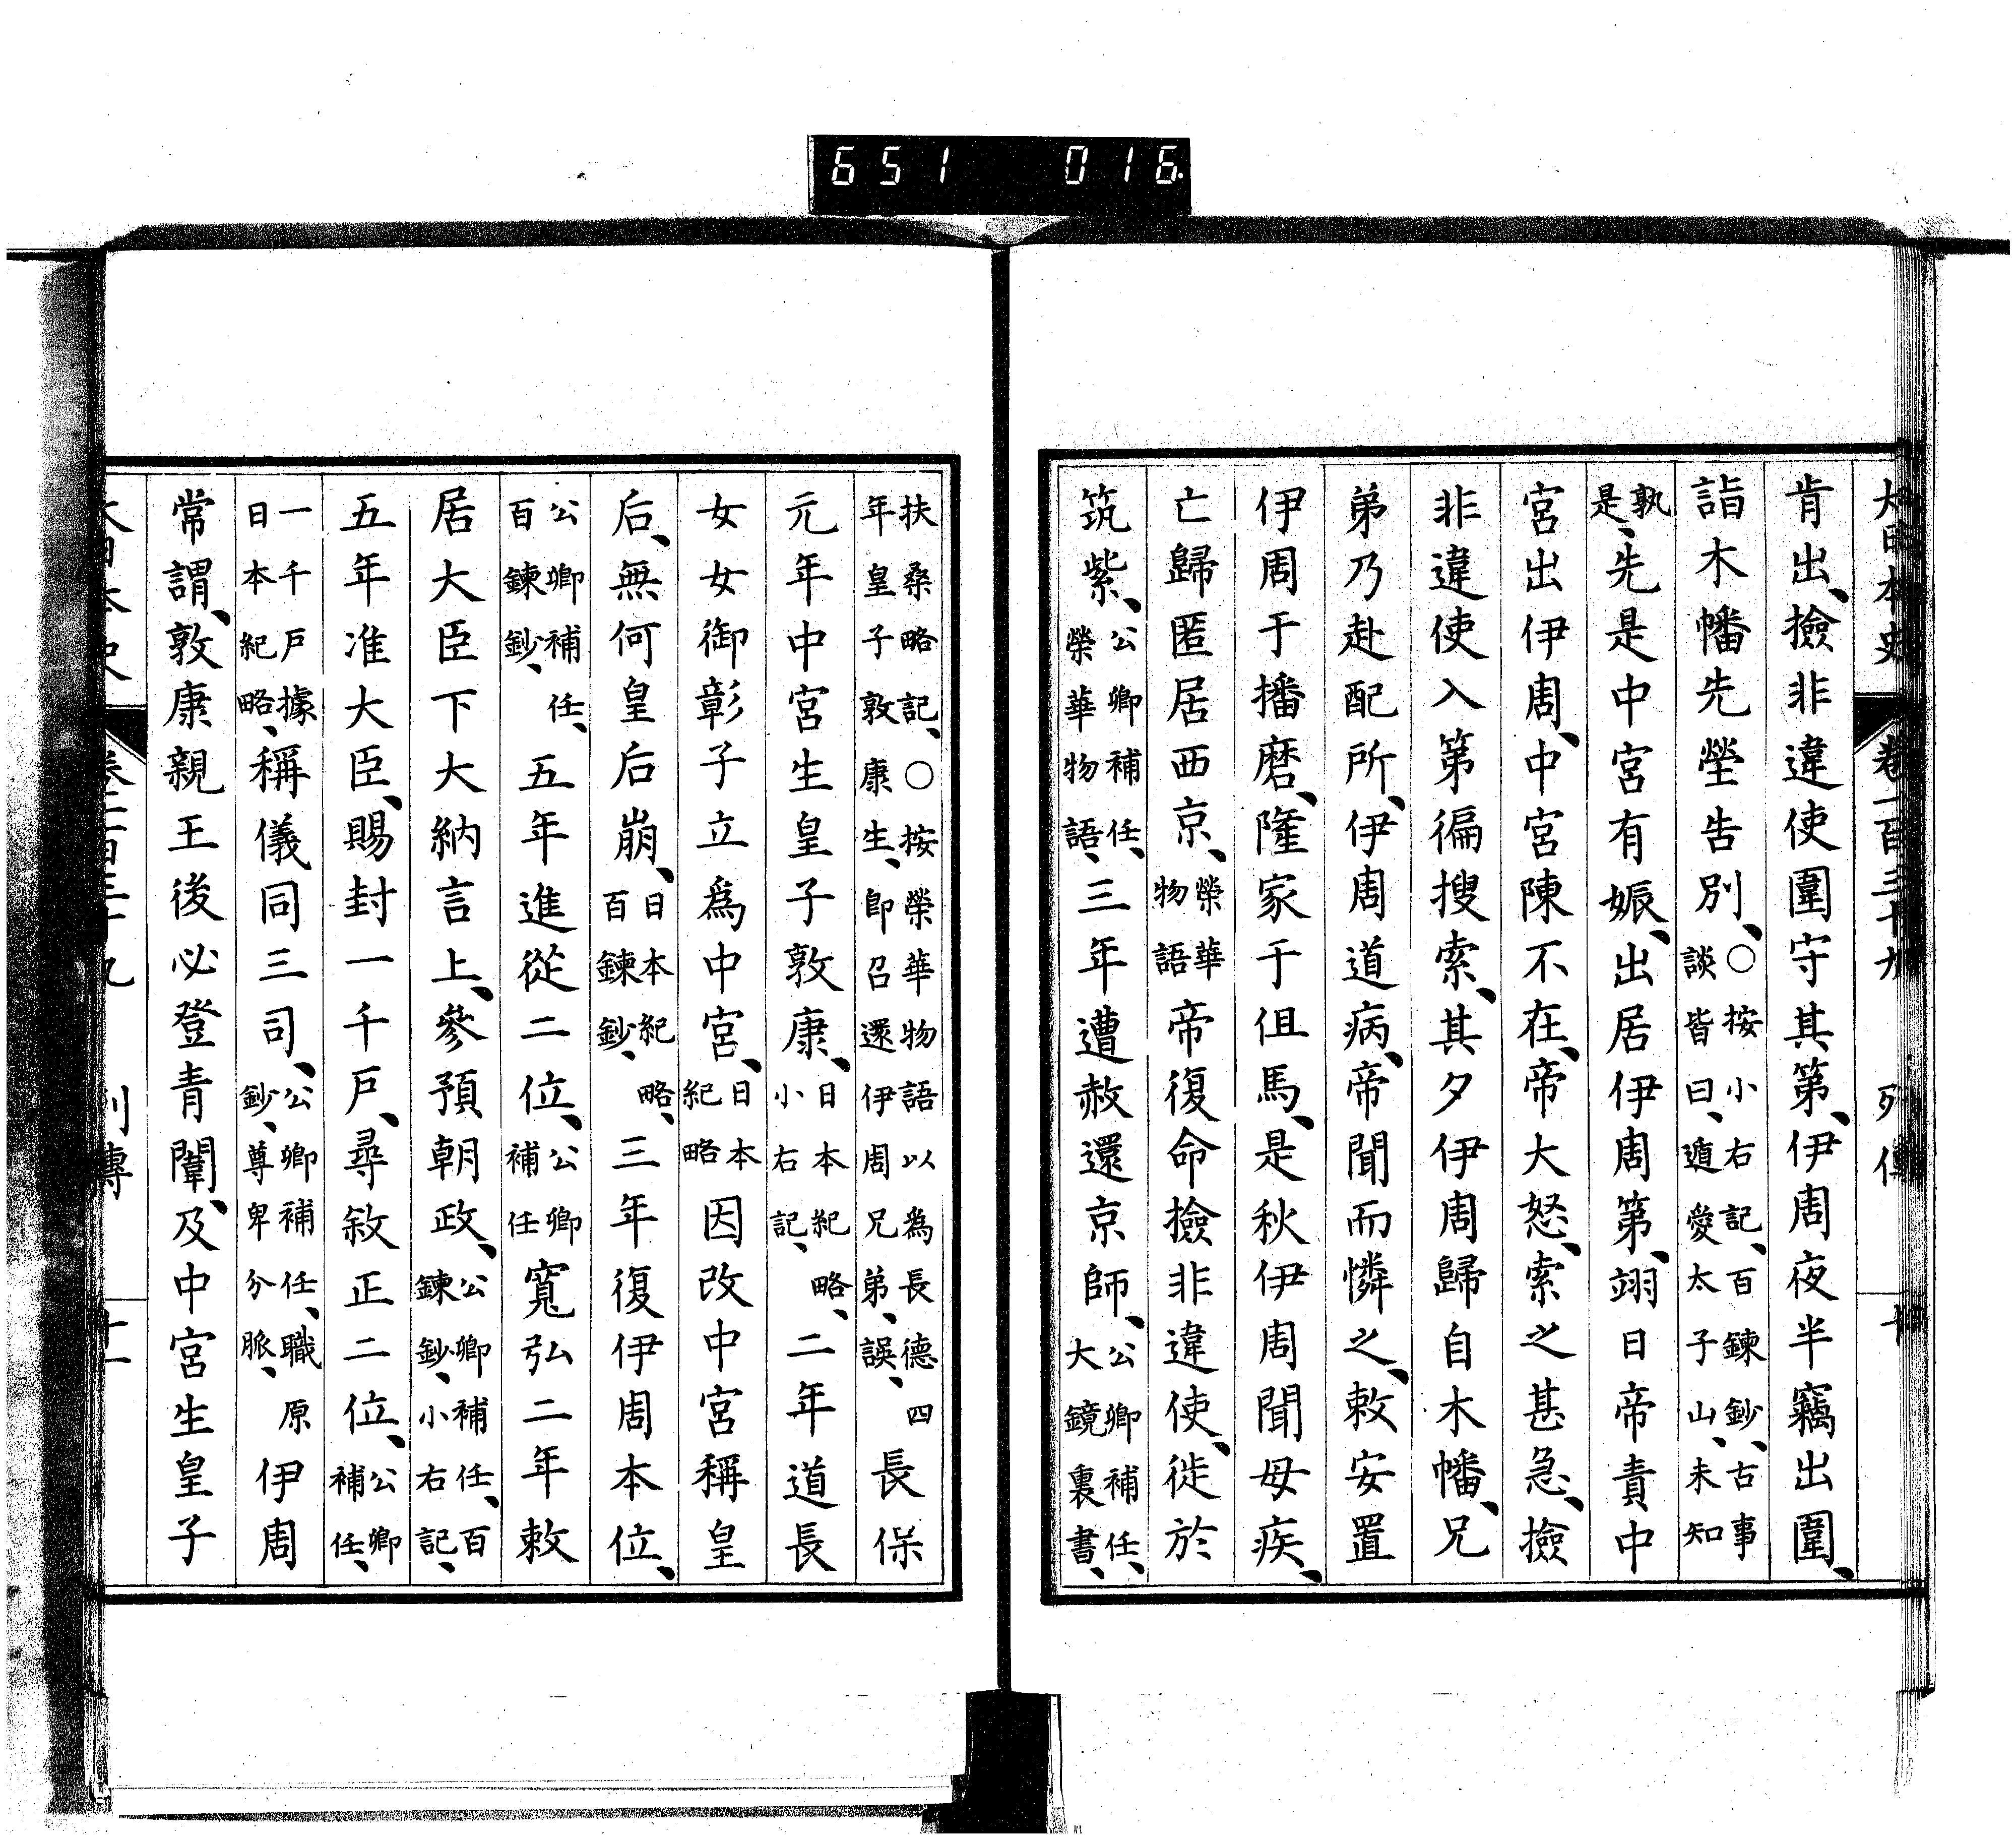 651 016
大日本史 卷一百三十九 列傳 十
肯出、撿非違使圍守其第、伊周夜半竊出圍、
詣木幡先塋告別、○按小右記、百鍊鈔、古事談皆曰、遁愛太子山、未知
孰是、先是中宮有娠、出居伊周第、翊日帝責中
宮出伊周、中宮陳不在、帝大怒、索之甚急、撿
非違使入第徧搜索、其夕伊周歸自木幡、兄
弟乃赴配所、伊周道病、帝聞而憐之、敕安置
伊周于播磨、隆家于但馬、是秋伊周聞母疾、
亡歸匿居西京、榮華物語帝復命撿非違使、徙於
筑紫、公卿補任、榮華物語、三年遭赦還京師、公卿補任、大鏡裏書、
扶桑略記、○按榮華物語以為長德四年皇子敦康生、卽召還伊周兄弟、誤、長保
元年中宮生皇子敦康、日本紀略、小右記、二年道長
女女御彰子立爲中宮、日本紀略因改中宮稱皇
后、無何皇后崩、日本紀略、百鍊鈔、三年復伊周本位、
公卿補任、百鍊鈔、五年進從二位、公卿補任寬弘二年敕
居大臣下大納言上、參預朝政、公卿補任、百鍊鈔、小右記、
五年准大臣、賜封一千戶、尋敘正二位、公卿補任、
一千戶據日本紀略、稱儀同三司、公卿補任、職原鈔、尊卑分脈、伊周
常謂、敦康親王後必登青闈、及中宮生皇子
大日本史 卷一百三十九 列傳 十一